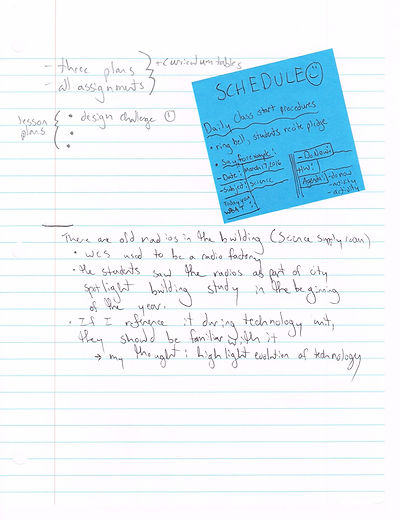 - three plans
- all assignments
+ curriculum tables
lesson plans
• design challenge
SCHEDULE
Daily class start procedures
• ring bell, students recite pledge
• Say, for example:
- Date: March 17, 2016
- Subject: Science
Today you
- Do Now:
- HW:
Agenda: - do now
- activity
- activity
There are old radios in the building (Science supply room)
• WCS used to be a radio factory
• The students saw the radios as part of city
spotlight building study in the beginning
of the year.
• If I reference it during technology unit,
they should be familiar with it
→ my thought: highlight evolution of technology